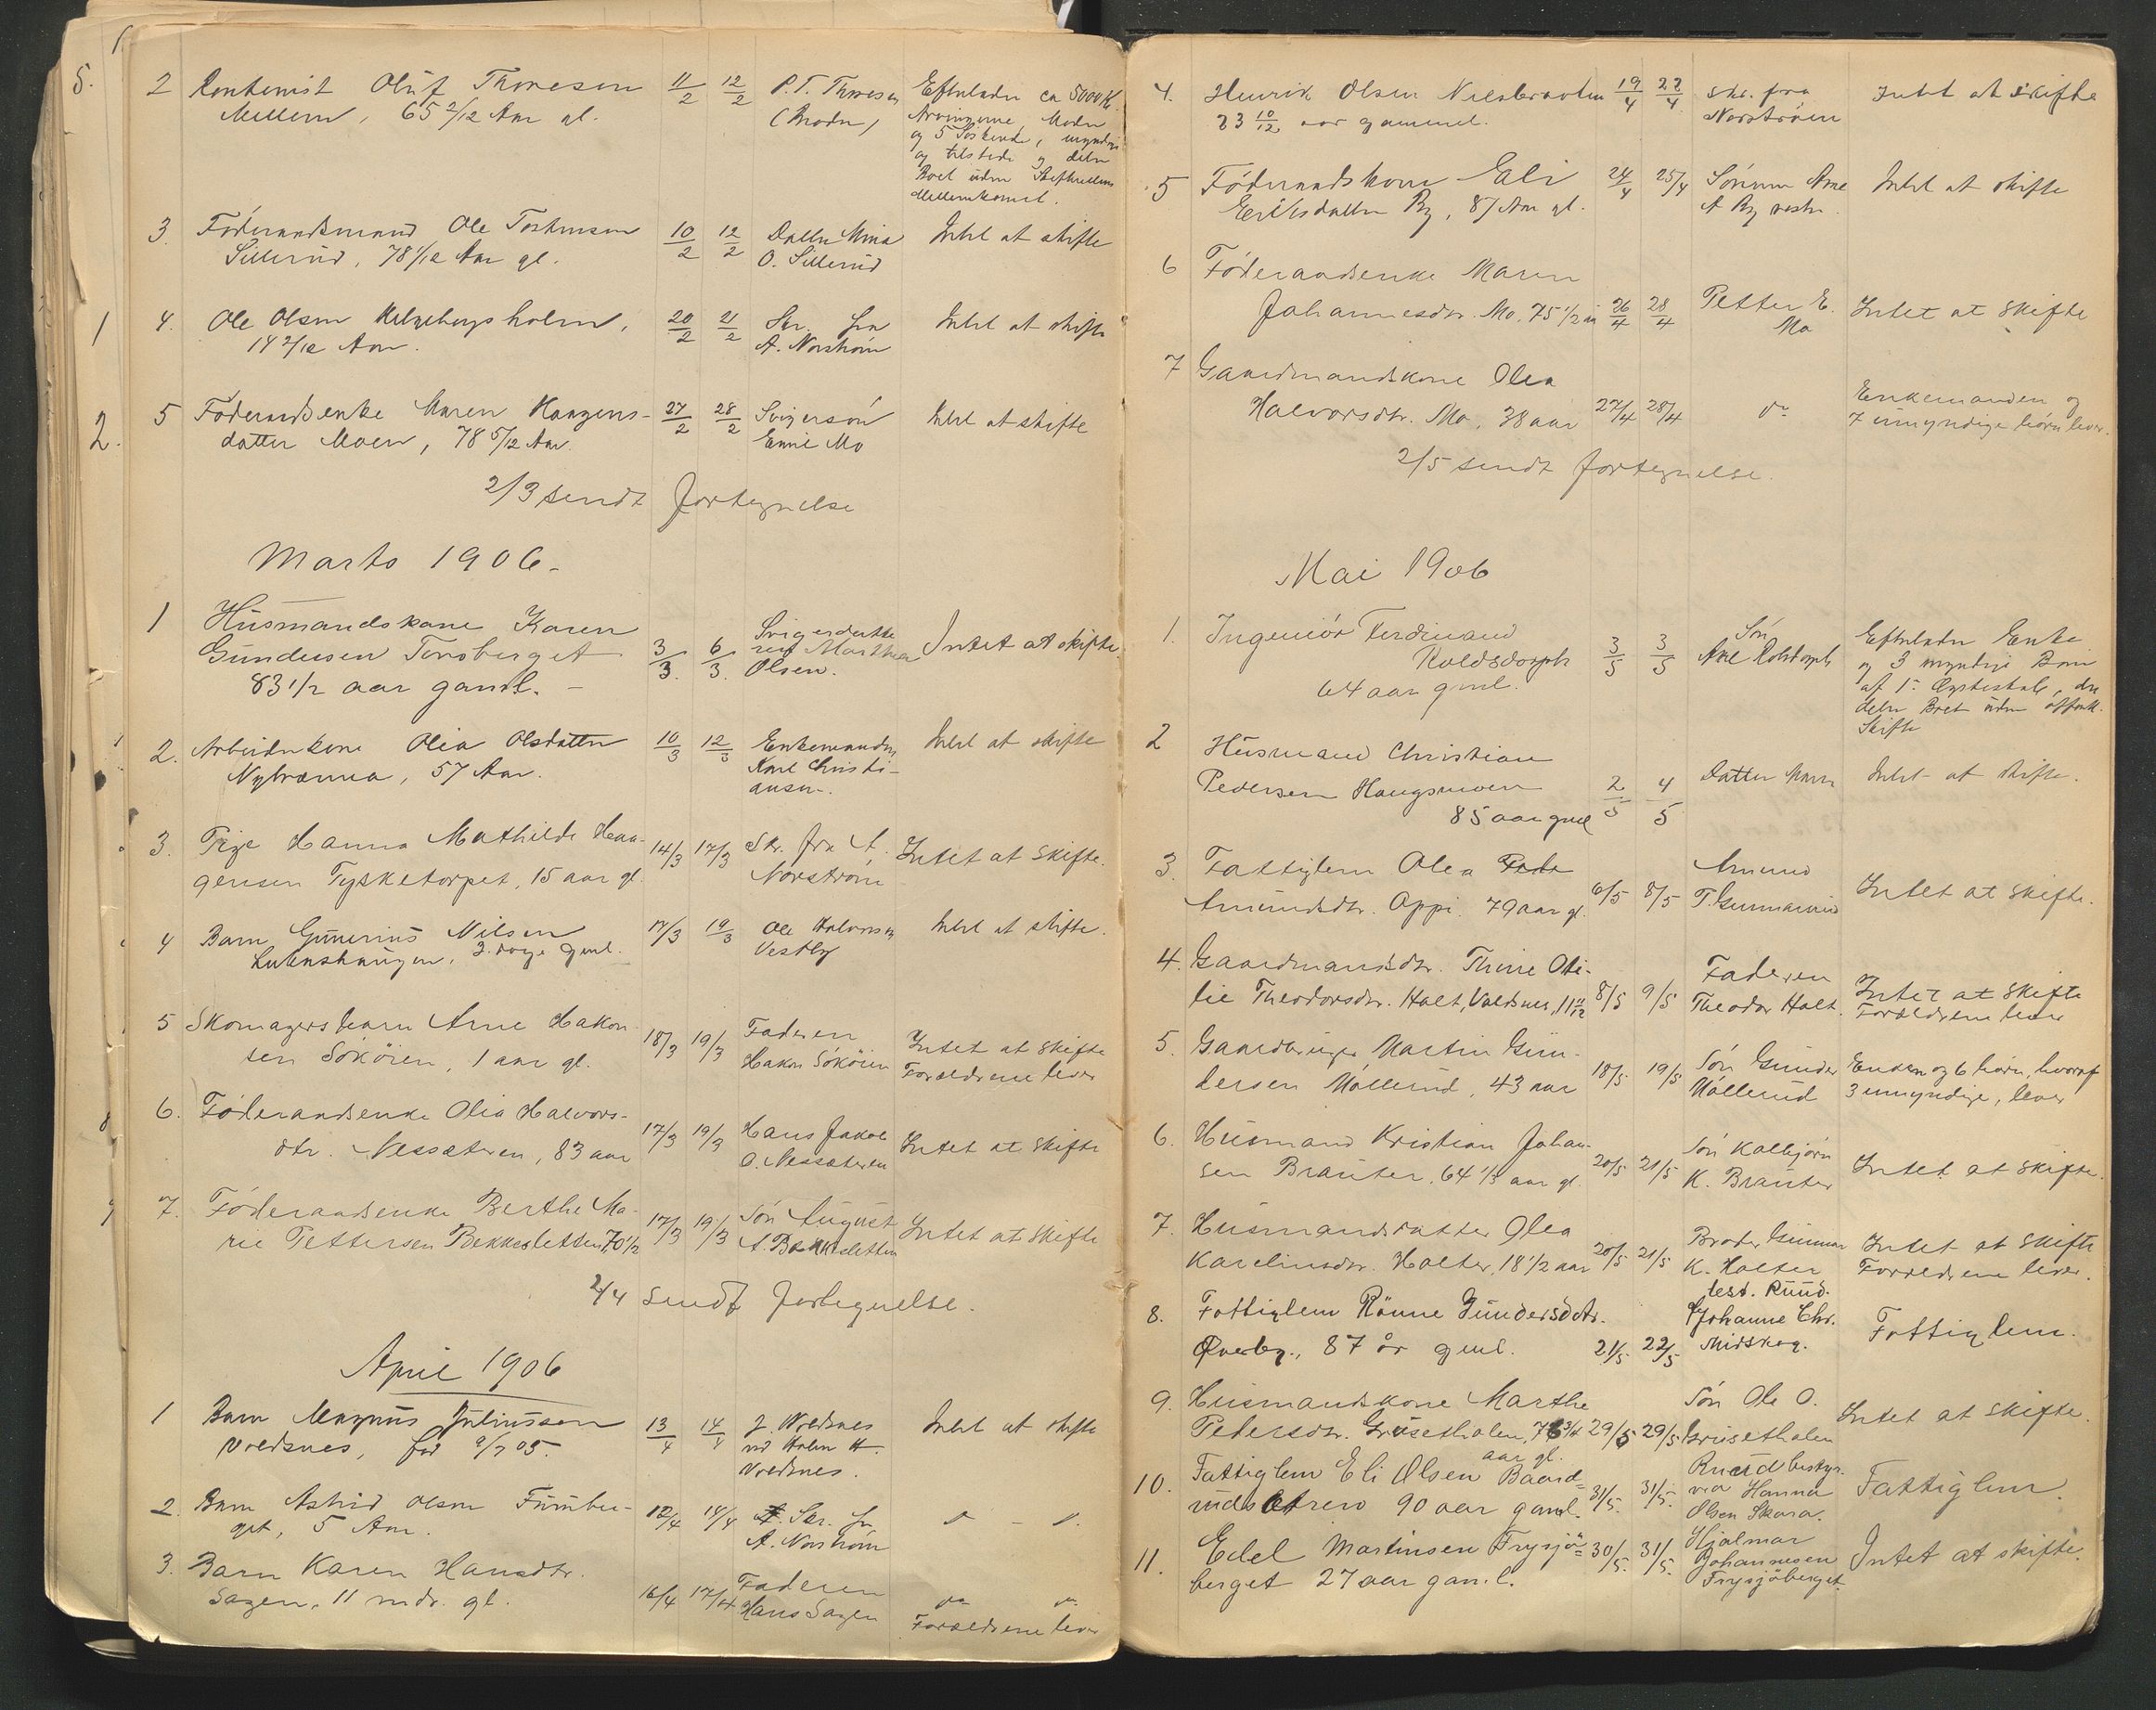 5.
2 Oluf Thoresen 11/2 12/2 P. T. Thoresen Efterlader ca 5000 Kr.
Mellem, 65 2/12 Aar gl. (Broder) Arvingerne, Moder
og 5 Søskende, myndige
og tilstede og deler
Boet uden Skifterettens
Mellemkomst.
3. Føderaadsmand Ole Torkersen 10/2 12/2 Datter Mina Intet at skifte
Sillerud, 78 1/12 Aar gl. O. Sillerud
1 4. Ole Olsen Helgebergsholm, 20/2 21/2 Skr. fra Intet at skifte
14 2/12 Aar. A. Norstrøm
2. 5 Føderaadsenke Maren Haagens- 27/2 28/2 Svigersøn Intet at skifte
datter Moen, 78 5/12 Aar. Emil Mo
2/3 sendt fortegnelse
Marts 1906.
1 Husmandskone Karen Svigerdatte
Gundersen Tonsberget 3/3. 6/3. ren Marthea Intet at skifte.
83 1/2 aar gaml. - Olsen.
2. Arbeiderkone Olia Olsdatter 10/3 12/3 Enkemanden Intet at skifte
Nybrænna, 57 Aar. Karl Christi-
ansen.
3. Pige Hanna Mathilde Haa- 14/3 17/3 Skr. fra A. Intet at skifte.
gensen Tysketorpet, 15 aar gl. Norstrøm
4 Barn Gunerius Nilsen 17/3 19/3 Ole Halvorsen Intet at skifte.
3. dage gml. Vestby
5 Skomagersbarn Arne Hakon- 18/3 19/3 Faderen Intet at skifte
sen Sökören, 1 aar gl. Hakon Sökören Forældrene lever
6. Føderaadsenke Olia Halvors- 17/3 19/3 Hans Jakob Intet at skifte
dtr. Nessæteren, 83 aar O. Nessæteren
7. Føderaadsenke Berthe Ma- 17/3 19/3 Søn August Intet at skifte
rie Pettersen Bekkesletten, 70 1/2 A. Bekkesletten
2/4 sendt fortegnelse.
April 1906
1 Barn Magnus Juliussen 13/4 14/4 J. Voldsnes Intet at skifte
Voldsnes, fød 9/7 05. ved Halm H.
Voldsnes.
2. Barn Astrid Olsen Furube- 12/4 14/4 Skr. fra
get, 5 Aar. A. Norstrøm
3. Barn Karen Hansdtr. 16/4 17/4 Faderen
Sagen, 11 mdr. gl. Hans Sagen Forældrene lever
4. Henrik Olsen Nilsbraaten 19/4 22/4 Skr. fra Intet at skifte
23 10/12 aar gammel. Norstrøm
5 Føderaadskone Eli 24/4 25/4 Sønnen Arne Intet at skifte
Eriksdatter By, 87 Aar gl. A By vestre.
6 Føderaadsenke Maren
Johannesdtr. Mo. 75 1/2 26/4 28/4 Petter E. Mo Intet at skifte
7 Gaardmandskone Olea Enkemanden og
Halvorsdtr. Mo, 38 aar 27/4 28/4 7 umyndige børn lever.
2/5 sendt fortegnelse.
Mai 1906
1. Ingeniør Ferdinand 3/5 3/5 Søn Efterlader Enke
Roldsdorph Axel Roldsdorph og 3 myndige Børn
64 aar gml. af 1. Ægteskab, der
deler Boet uden offentl.
Skifte
2 Husmand Christian
Pedersen Haugsmoen 2/5 4/5 Datter Maren Intet at skifte.
85 aar gml
3. Fattiglem Olea 6/5 8/5 Amund Intet at skifte.
Amundsdtr. Oppi. 79 aar gl. T. Gunnarsrud
4. Gaardmandsdtr. Thine Oti- Faderen
lie Theodorsdtr. Holt, Voldsnes, 11 11/12 8/5 9/5 Theodor Holt. Intet at skifte
Forældrene lever
5. Gaardbruger Martin Gun- 18/5 19/5 Søn Gunder Enken og 6 børn, hvoraf
dersen Møllerud, 43 aar Møllerud 3 umyndige, lever
6. Husmand Kristian Johan- 20/5 21/5 Søn Kolbjørn Intet at skifte.
sen Bråuter, 64 1/3 aar gl. K. Bråuter
7. Husmandsdatter Olea 20/5 21/5 Broder Gunnar Intet at skifte
Karelinsdtr. Holter, 18 1/2 aar K. Holter Forældrene lever.
8. Fattiglem Rønne Gundersdatr. best. Ruud. Fattiglem.
Øverby., 87 år gml. 21/5. 22/5 v/Johanne Chr. Midskog.
9. Husmandskone Marthe Søn Ole O. Intet at skifte.
Pedersdtr. Grusethalen, 76 3/4 29/5 29/5 Grusethalen
aar gl.
10. Fattiglem Eli Olsen Baard- 31/5. 31/5. Ruud bestyr. Fattiglem.
rudsætren 90 aar gaml. ved Hanna
Olsen Skara.
11. Edel Martinsen Frysjö- 30/5. 31/5. Hjalmar Intet at skifte.
berget 27 aar gaml. Johannesen
Frysjöberget